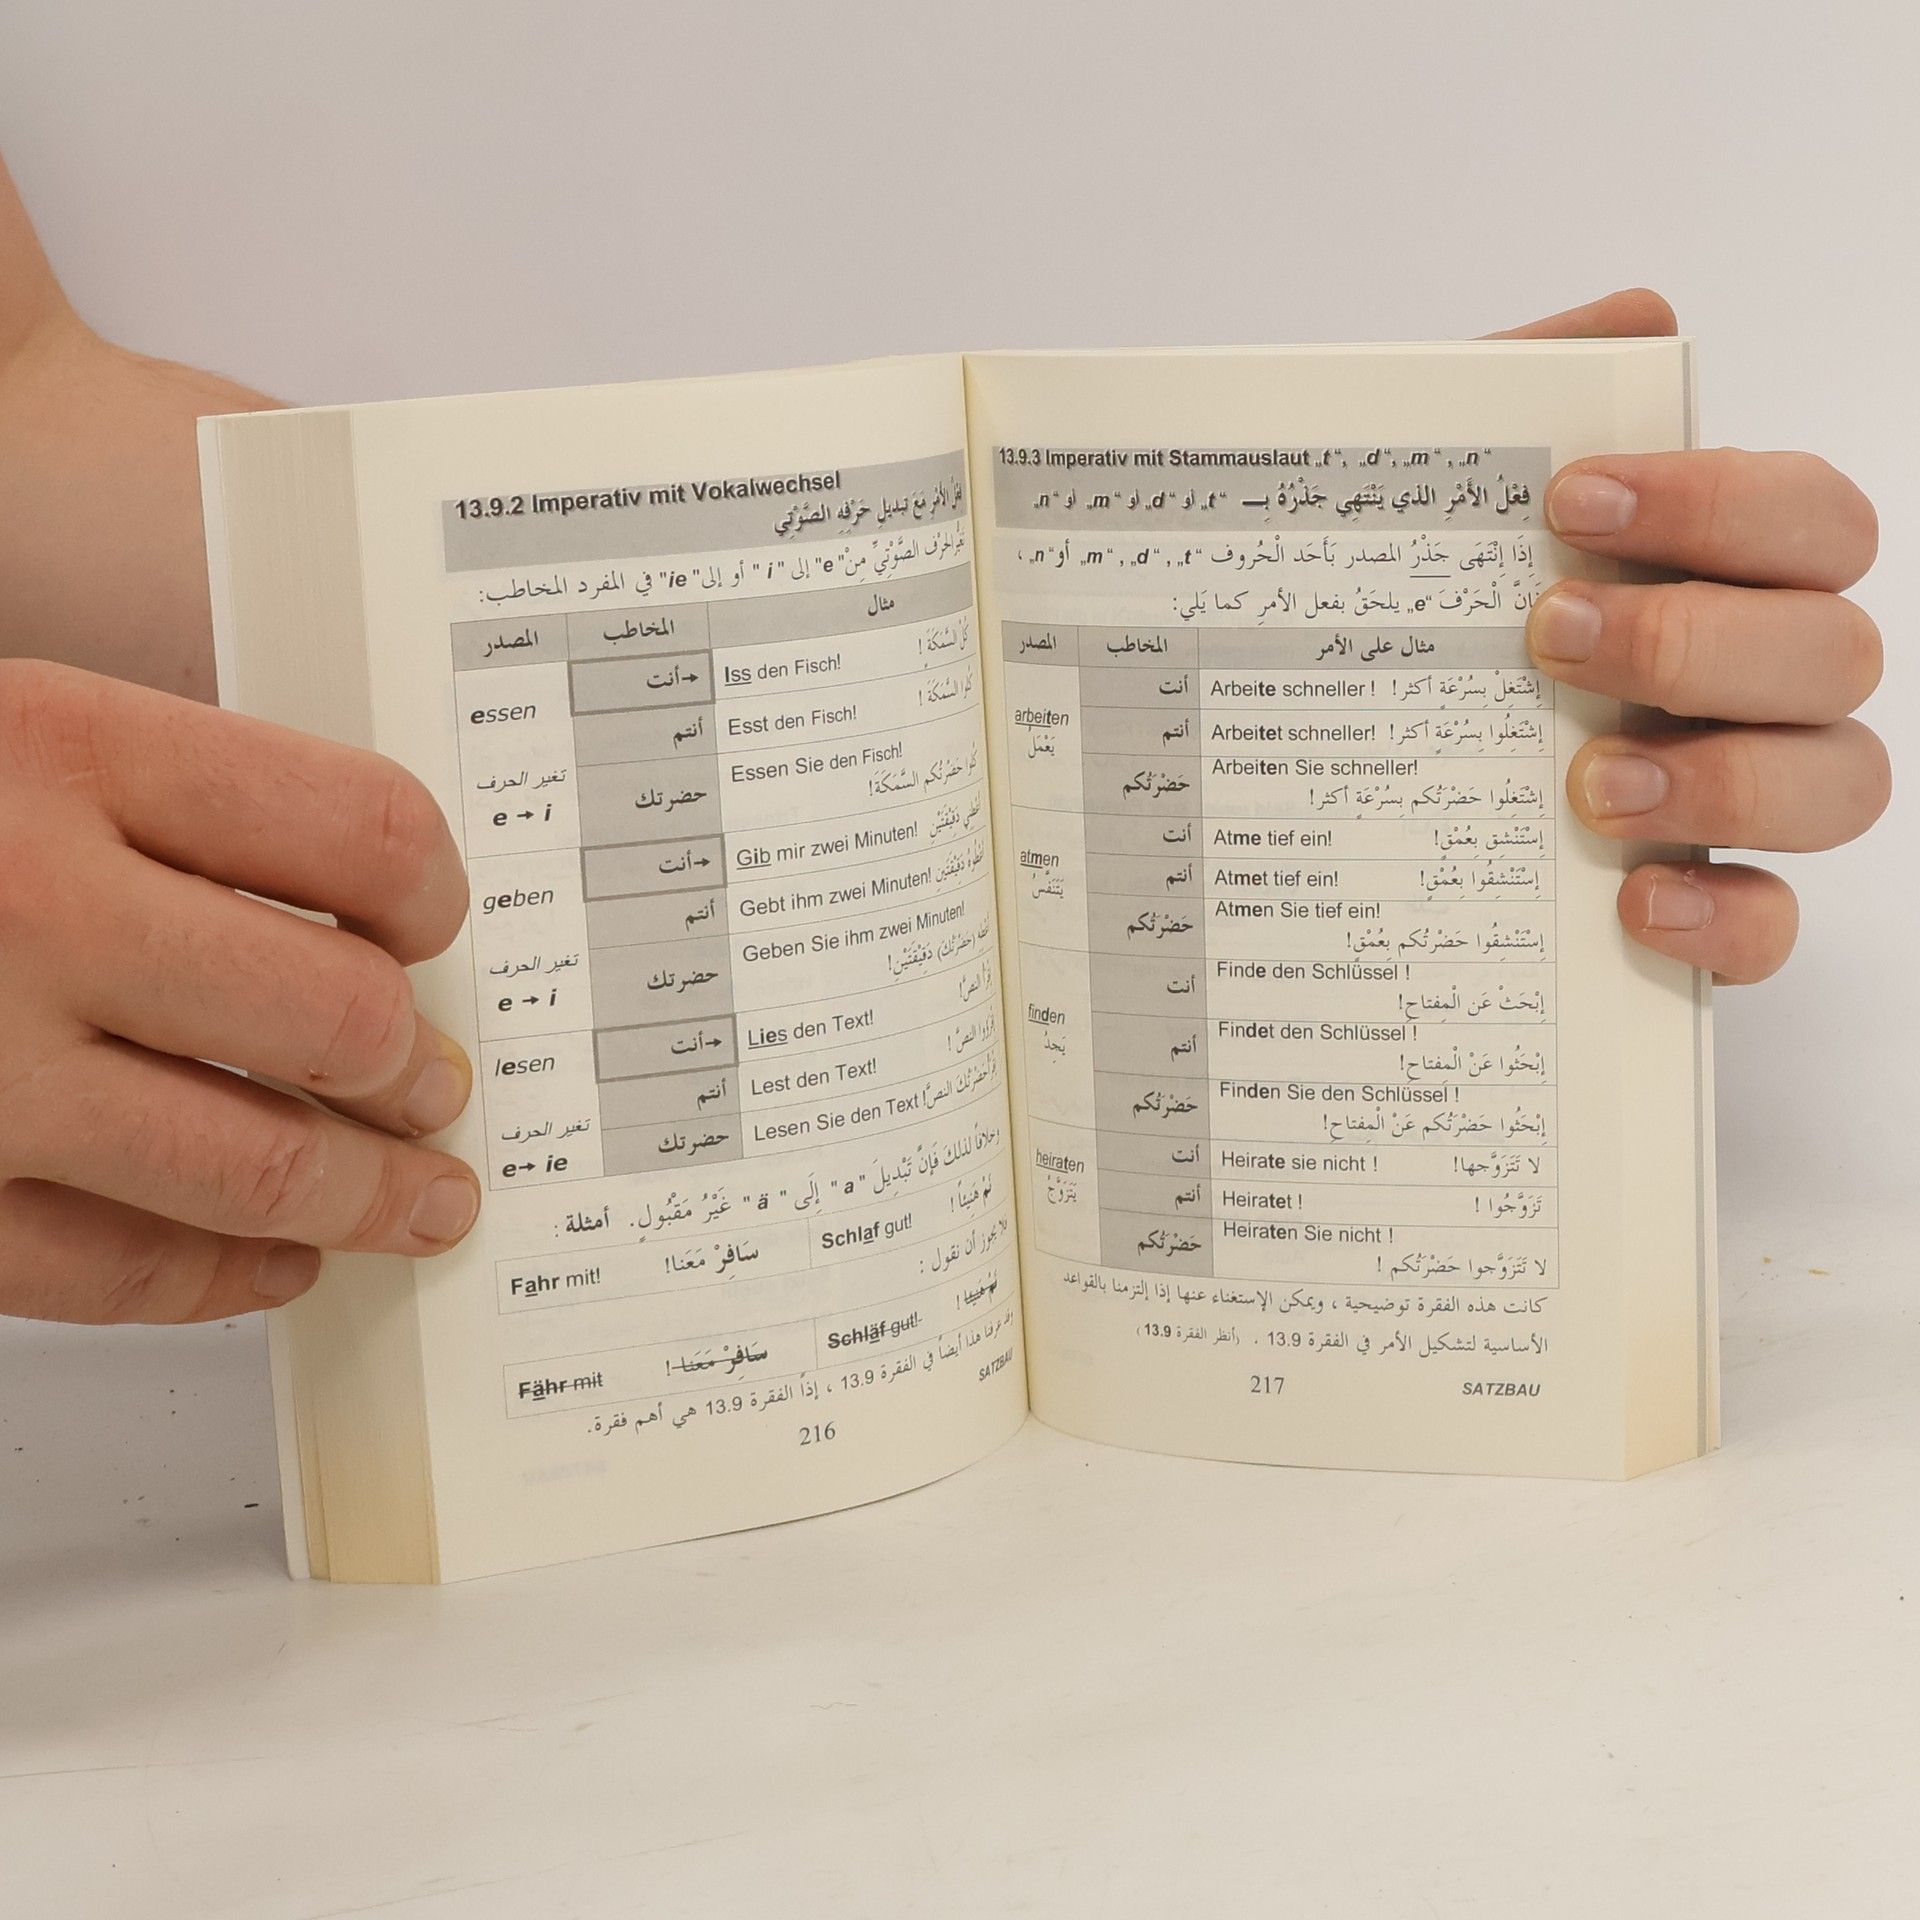 13.9.2 Imperativ mit Vokalwechsel
فِعْلُ الأَمْرِ مَعَ تبديلِ حَرْفِهِ الصَّوْتِي
الحَرْف الصَّوْتِيِّ مِنْ "e" إلى " i " أو إلى "ie" في المفرد المخاطب:
المصدر المخاطب مثال
essen →أنت Iss den Fisch! كُلْ السَّمَكَةَ !
أنتم Esst den Fisch! كُلُوا السَّمَكَةَ !
تغير الحرف
e → i
حضرتك Essen Sie den Fisch!
كُلُوا حَضْرَتُكم السَّمَكَةَ!
geben →أنت Gib mir zwei Minuten! دَقِيْقَتَيْنِ
أنتم Gebt ihm zwei Minuten! دَقِيْقَتَيْنِ
تغير الحرف
e → i
حضرتك Geben Sie ihm zwei Minuten!
(حَضْرَتُكَ) دَقِيْقَتَيْنِ!
lesen →أنت Lies den Text! النصَّ!
أنتم Lest den Text! النصَّ !
تغير الحرف
e→ ie
حضرتك Lesen Sie den Text! حَضْرَتُكَ النصَّ!
وخلافاً لذلكَ فَإِنَّ تَبْدِيلَ " a " إِلَى " ä " غَيْرُ مَقْبُولٍ. أمثلة :
Fahr mit! سَافِرْ مَعَنا! Schlaf gut! نَمْ هَنِيئاً !
لا يجوز أن نقول :
Fähr mit سَافِرْ مَعَنا ! Schläf gut! نَمْ هَنِيئا !
وقد عرفنا هذا أيضاً في الفقرة 13.9 ، إذاً الفقرة 13.9 هي أهم فقرة.
SATZBAU
216
13.9.3 Imperativ mit Stammauslaut „t“, „d“, „m“, „n“
فِعْلُ الأَمْرِ الذي يَنْتَهِي جَذْرُهُ بِـــ „t“ أو „d“ أو „m“ أو „n“
إِذَا إِنْتَهَى جَذْرُ المصدر بَأَحَد الْحُروف „t“ , „d“ , „m“ أو „n“ ،
فَإنَّ الْحَرْفَ „e“ يلحَقُ بفعل الأمرِ كما يَلي:
المصدر المخاطب مثال على الأمر
arbeiten
يَعْمَلُ
أنت Arbeite schneller ! إِشْتَغِلْ بِسُرْعَةٍ أكثر!
أنتم Arbeitet schneller! إِشْتَغِلُوا بِسُرْعَةٍ أكثر!
حَضْرَتُكم Arbeiten Sie schneller!
إِشْتَغِلُوا حَضْرَتُكم بِسُرْعَةٍ أكثر!
atmen
يَتَنَفَّسُ
أنت Atme tief ein! إِسْتَنْشِق بِعُمْقٍ!
أنتم Atmet tief ein! إِسْتَنْشِقُوا بِعُمْقٍ!
حَضْرَتُكم Atmen Sie tief ein!
إِسْتَنْشِقُوا حَضْرَتُكم بِعُمْقٍ!
finden
يَجِدُ
أنت Finde den Schlüssel !
إِبْحَثْ عَن الْمِفتاحِ!
أنتم Findet den Schlüssel !
إِبْحَثُوا عَنْ الْمِفتاحِ!
حَضْرَتُكم Finden Sie den Schlüssel !
إِبْحَثُوا حَضْرَتُكم عَنْ الْمِفتاحِ!
heiraten
يَتَزَوَّجُ
أنت Heirate sie nicht ! لا تَتَزَوَّجها!
أنتم Heiratet ! تَزَوَّجُوا !
حَضْرَتُكم Heiraten Sie nicht !
لا تَتَزَوَّجوا حَضْرَتُكم !
كانت هذه الفقرة توضيحية ، ويمكن الإستغناء عنها إذا إلتزمنا بالقواعد
الأساسية لتشكيل الأمر في الفقرة 13.9 . (أنظر الفقرة 13.9)
217
SATZBAU